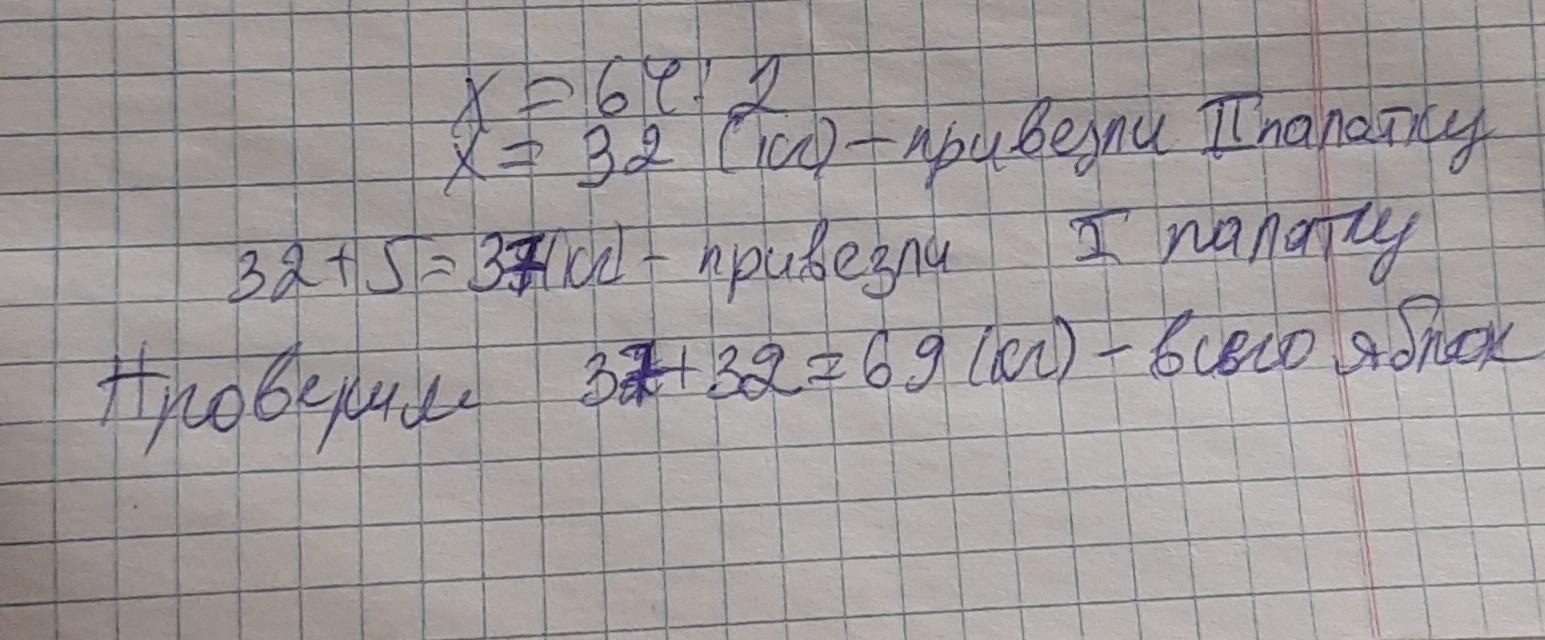 x = 64 : 2
x = 32 (кг) – привезли II палатку
32 + 5 = 37 (кг) – привезли I палатку
Проверим 37 + 32 = 69 (кг) – всего яблок